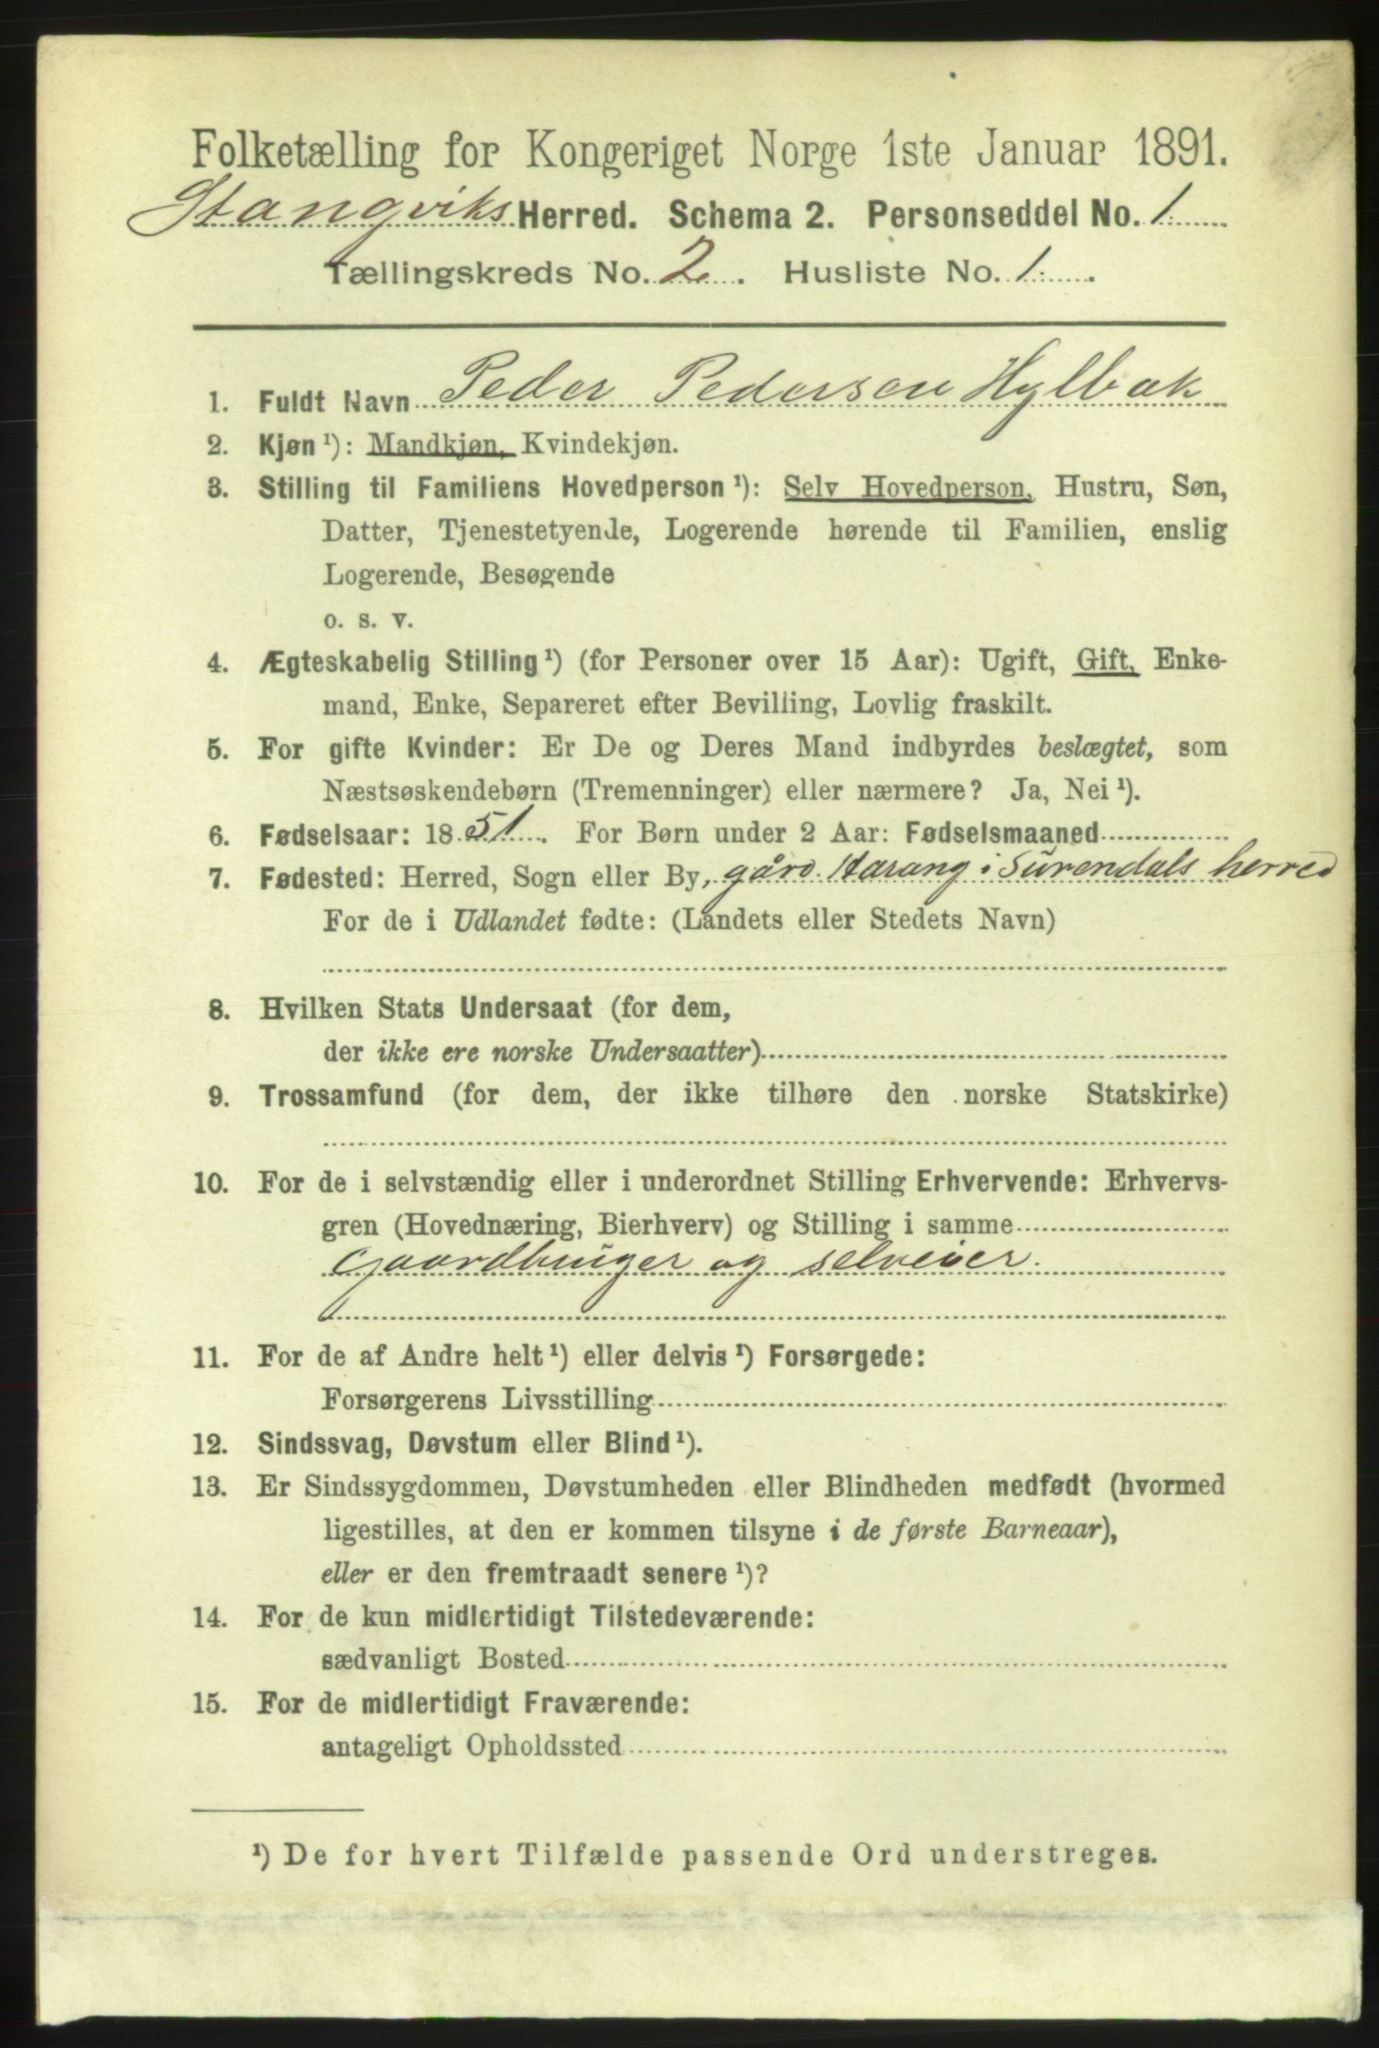 Folketælling for Kongeriget Norge 1ste Januar 1891.
Stangviks Herred. Schema 2. Personseddel No. 1
Tællingskreds No. 2. Husliste No. 1.
1. Fuldt Navn Peder Pedersen Hylbak
2. Kjøn ¹): Mandkjøn, Kvindekjøn.
3. Stilling til Familiens Hovedperson ¹): Selv Hovedperson, Hustru, Søn,
Datter, Tjenestetyende, Logerende hørende til Familien, enslig
Logerende, Besøgende
o. s. v.
4. Ægteskabelig Stilling ¹) (for Personer over 15 Aar): Ugift, Gift, Enke-
mand, Enke, Separeret efter Bevilling, Lovlig fraskilt.
5. For gifte Kvinder: Er De og Deres Mand indbyrdes beslægtet, som
Næstsøskendebørn (Tremenninger) eller nærmere? Ja, Nei ¹).
6. Fødselsaar: 1851. For Børn under 2 Aar: Fødselsmaaned
7. Fødested: Herred, Sogn eller By, gård. Harang i Surendals herred
For de i Udlandet fødte: (Landets eller Stedets Navn)
8. Hvilken Stats Undersaat (for dem,
der ikke ere norske Undersaatter)
9. Trossamfund (for dem, der ikke tilhøre den norske Statskirke)
10. For de i selvstændig eller i underordnet Stilling Erhvervende: Erhvervs-
gren (Hovednæring, Bierhverv) og Stilling i samme
Gaardbruger og selveier.
11. For de af Andre helt ¹) eller delvis ¹) Forsørgede:
Forsørgerens Livsstilling
12. Sindssvag, Døvstum eller Blind ¹).
13. Er Sindssygdommen, Døvstumheden eller Blindheden medfødt (hvormed
ligestilles, at den er kommen tilsyne i de første Barneaar),
eller er den fremtraadt senere ¹)?
14. For de kun midlertidigt Tilstedeværende:
sædvanligt Bosted
15. For de midlertidigt Fraværende:
antageligt Opholdssted
¹) De for hvert Tilfælde passende Ord understreges.